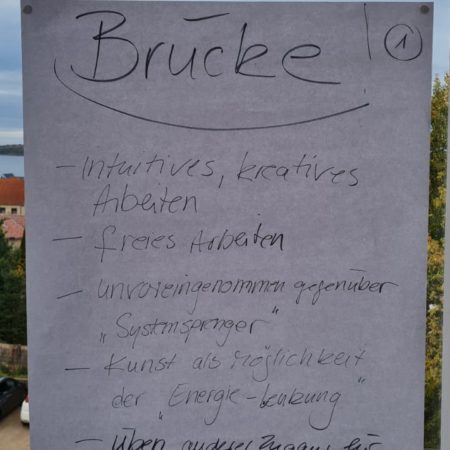 Brücke! ①
– Intuitives, kreatives
Arbeiten
– freies Arbeiten
– unvoreingenommen gegenüber
„Systemsprenger“
– Kunst als Möglichkeit
der „Energie-lenkung“
– Üben anderer Zugang für